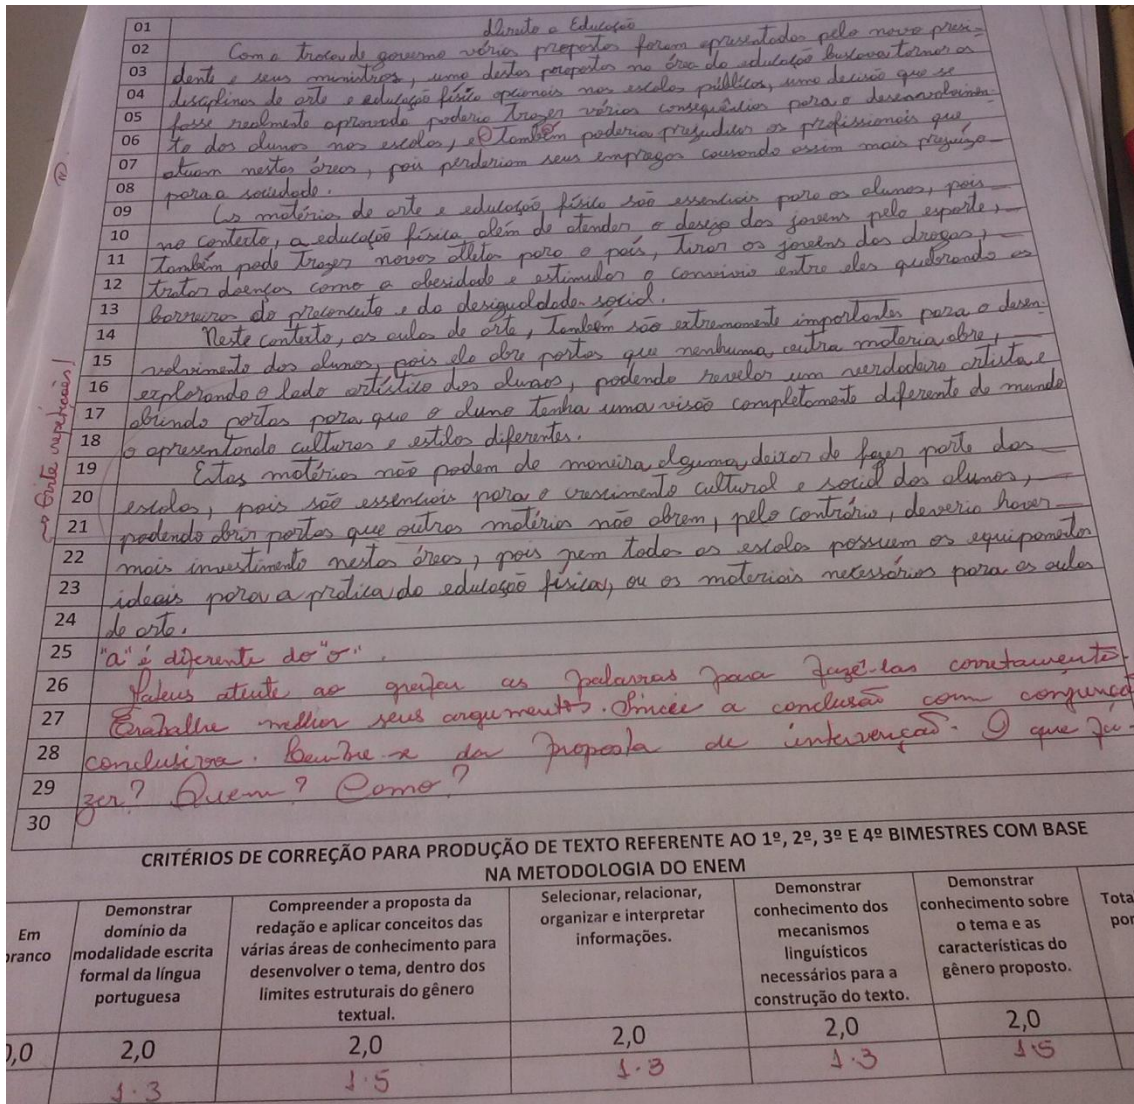 01 Direito a Educação
02 Com a troca de governo vários propostas foram apresentadas pelo novo presi-
03 dente e seus ministros, uma destas propostas na área da educação buscava tornar as
04 disciplinas de arte e educação física opcionais nas escolas públicas, uma decisão que se
05 fosse realmente aprovada poderia trazer várias consequências para o desenvolvimen-
06 to dos alunos nas escolas, e também poderia prejudicar os profissionais que
07 atuam nestas áreas, pois perderiam seus empregos causando assim mais prejuízo
08 para a sociedade.
09 As matéria de arte e educação física são essenciais para os alunos, pois
10 no contexto, a educação física além de atender o desejo dos jovens pelo esporte,
11 também pode trazer novos atletas para o país, tirar os jovens das drogas,
12 tratar doenças como a obesidade e estimular o convívio entre eles quebrando as
13 barreiras do preconceito e da desigualdade social.
14 Neste contexto, as aulas de arte, também são extremamente importantes para o desen-
15 volvimento dos alunos, pois ela abre portas que nenhuma outra materia abre,
16 explorando o lado artístico dos alunos, podendo revelar um verdadeiro artista e
17 abrindo portas para que o aluno tenha uma visão completamente diferente do mundo
18 o apresentando culturas e estilos diferentes.
19 Estas matérias não podem de maneira alguma deixar de fazer parte das
20 escolas, pois são essenciais para o crescimento cultural e social dos alunos,
21 podendo abrir portas que outras matéria não abrem, pelo contrário, deveria haver
22 mais investimento nestas áreas, pois nem todas as escolas possuem os equipamentos
23 ideais para a prática da educação física, ou os materiais necessários para as aulas
24 de arte.
→ Evite repetições!
25 "a" é diferente do "o".
26 Mateus atente ao grafar as palavras para fazê-las corretamente.
27 Trabalhe melhor seus argumentos. Inicie a conclusão com conjunçã
28 conclusiva. Lembre-se da proposta de intervenção. O que fa-
29 zer? Quem? Como?
30
CRITÉRIOS DE CORREÇÃO PARA PRODUÇÃO DE TEXTO REFERENTE AO 1º, 2º, 3º E 4º BIMESTRES COM BASE
NA METODOLOGIA DO ENEM
Em
ranco
Demonstrar
domínio da
modalidade escrita
formal da língua
portuguesa
Compreender a proposta da
redação e aplicar conceitos das
várias áreas de conhecimento para
desenvolver o tema, dentro dos
limites estruturais do gênero
textual.
Selecionar, relacionar,
organizar e interpretar
informações.
Demonstrar
conhecimento dos
mecanismos
linguísticos
necessários para a
construção do texto.
Demonstrar
conhecimento sobre
o tema e as
características do
gênero proposto.
Tota
por
0,0 2,0 2,0 2,0 2,0 2,0
1.3 1.5 1.3 1.3 1.5